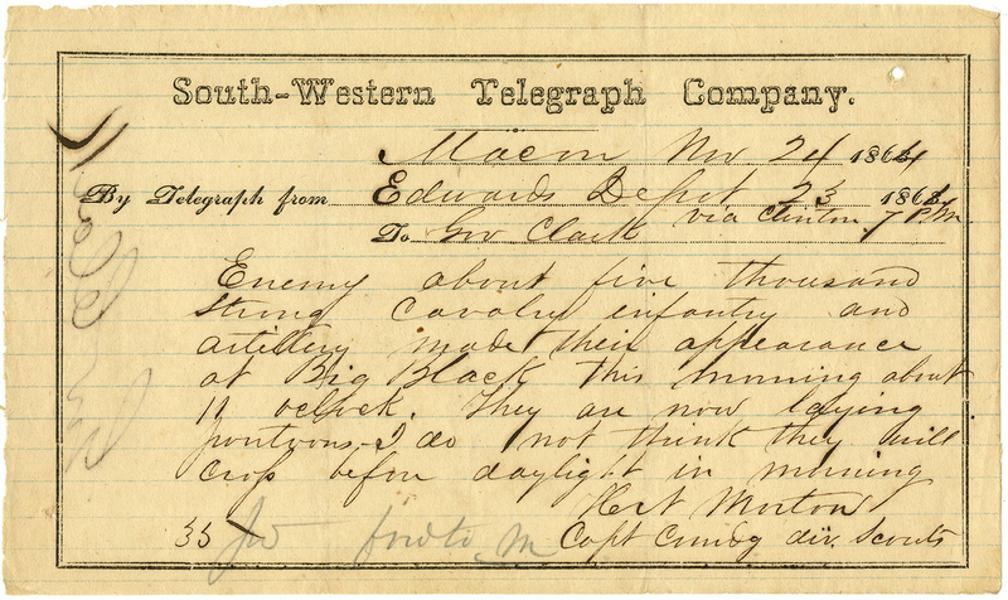 South-Western Telegraph Company.
Macon Nov. 24 1864
By Telegraph from Edwards Depot 23 1864
via Clinton 7 P.M
To Gov Clark
Enemy about five thousand
strong cavalry infantry and
artillery made their appearance
at Big Black this morning about
11 oclock. They are now laying
pontoons - I do not think they will
cross before daylight in morning
Morton
Capt Comdg div. Scouts
33